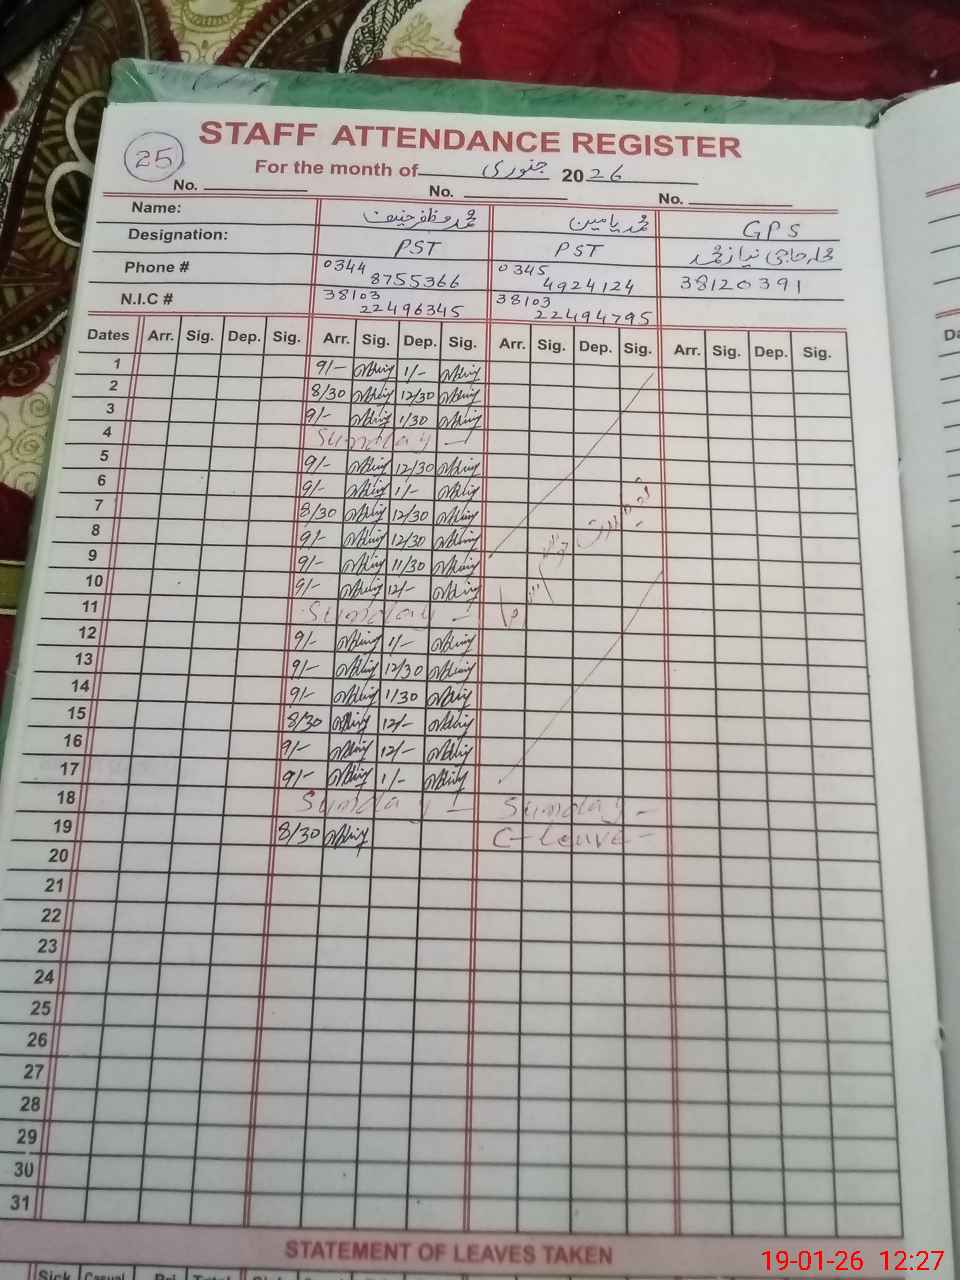 STAFF ATTENDANCE REGISTER
25
For the month of جنوری 2026
No. No. No.
Name: محمد مظفر حنیف محمد یامین GPS
Designation: PST PST محلہ حاجی نیاز محمد
Phone # 0344 8755366 0345 4924124 38120391
N.I.C # 38103 22496345 38103 22494795
Dates Arr. Sig. Dep. Sig. Arr. Sig. Dep. Sig. Arr. Sig. Dep. Sig. Arr. Sig. Dep. Sig.
1 9/- 1/-
2 8/30 12/30
3 9/- 1/30
4 Sunday
5 9/- 12/30
6 9/- 1/-
7 8/30 12/30
8 9/- 12/30
9 9/- 11/30
10 9/- 12/-
11 Sunday
12 9/- 1/-
13 9/- 12/30
14 9/- 1/30
15 8/30 12/-
16 9/- 12/-
17 9/- 1/-
18 Sunday Sunday
19 8/30 C-leave
20
21
22
23
24
25
26
27
28
29
30
31
STATEMENT OF LEAVES TAKEN
Sick Casual
19-01-26 12:27